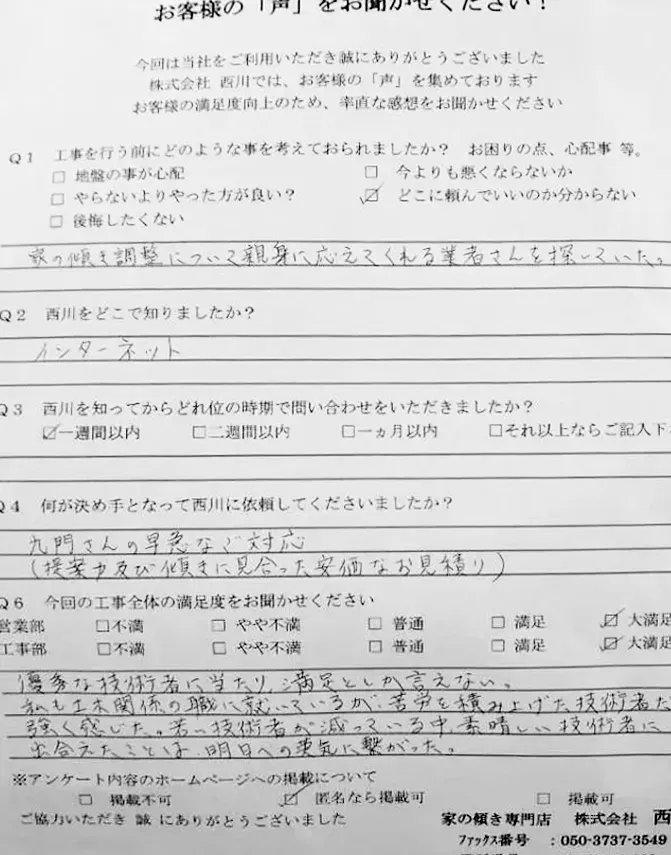 お客様の「声」をお聞かせください！
今回は当社をご利用いただき誠にありがとうございました
株式会社 西川では、お客様の「声」を集めております
お客様の満足度向上のため、率直な感想をお聞かせください
Q1 工事を行う前にどのような事を考えておられましたか？ お困りの点、心配事 等。
□ 地盤の事が心配 □ 今よりも悪くならないか
□ やらないよりやった方が良い？ ☑ どこに頼んでいいのか分からない
□ 後悔したくない
家の傾き調整について親身に応えてくれる業者さんを探していた。
Q2 西川をどこで知りましたか？
インターネット
Q3 西川を知ってからどれ位の時期で問い合わせをいただきましたか？
☑一週間以内 □二週間以内 □一ヵ月以内 □それ以上ならご記入下
Q4 何が決め手となって西川に依頼してくださいましたか？
九門さんの早急なご対応
(提案力及び傾きに見合った安価なお見積り)
Q6 今回の工事全体の満足度をお聞かせください
営業部 □不満 □ やや不満 □ 普通 □ 満足 ☑ 大満足
工事部 □不満 □ やや不満 □ 普通 □ 満足 ☑ 大満足
優秀な技術者に当たり、満足としか言えない。
私も土木関係の職に就いているが、苦労を積み上げた技術者だ
強く感じた。若い技術者が減っている中、素晴しい技術者に
出会えたことは、明日への勇気に繋がった。
※アンケート内容のホームページへの掲載について
□ 掲載不可 ☑ 匿名なら掲載可 □ 掲載可
ご協力いただき 誠 にありがとうございました
家の傾き専門店 株式会社 西
ﾌｧｯｸｽ番号 ：050-3737-3549